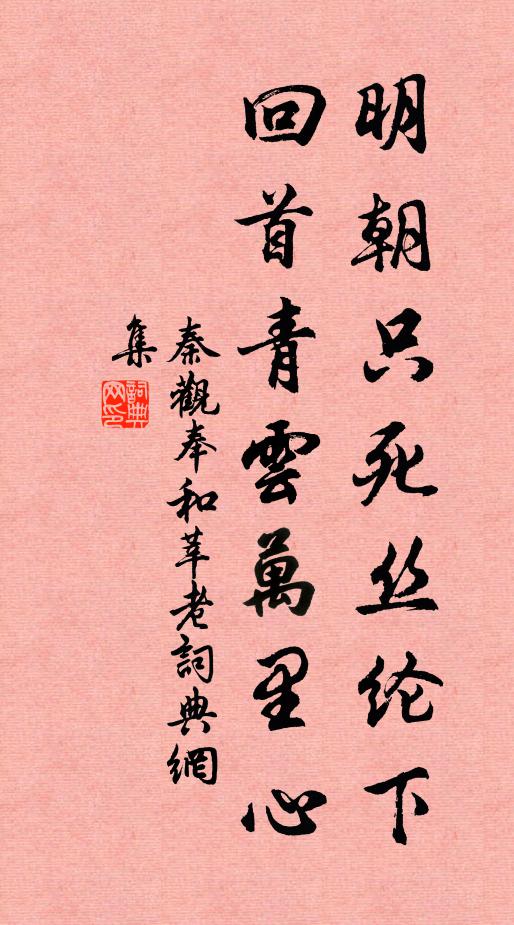 明朝只死丝纶下
回首青雲萬里心
秦觀奉和莘老詞典網
集
詞典網印